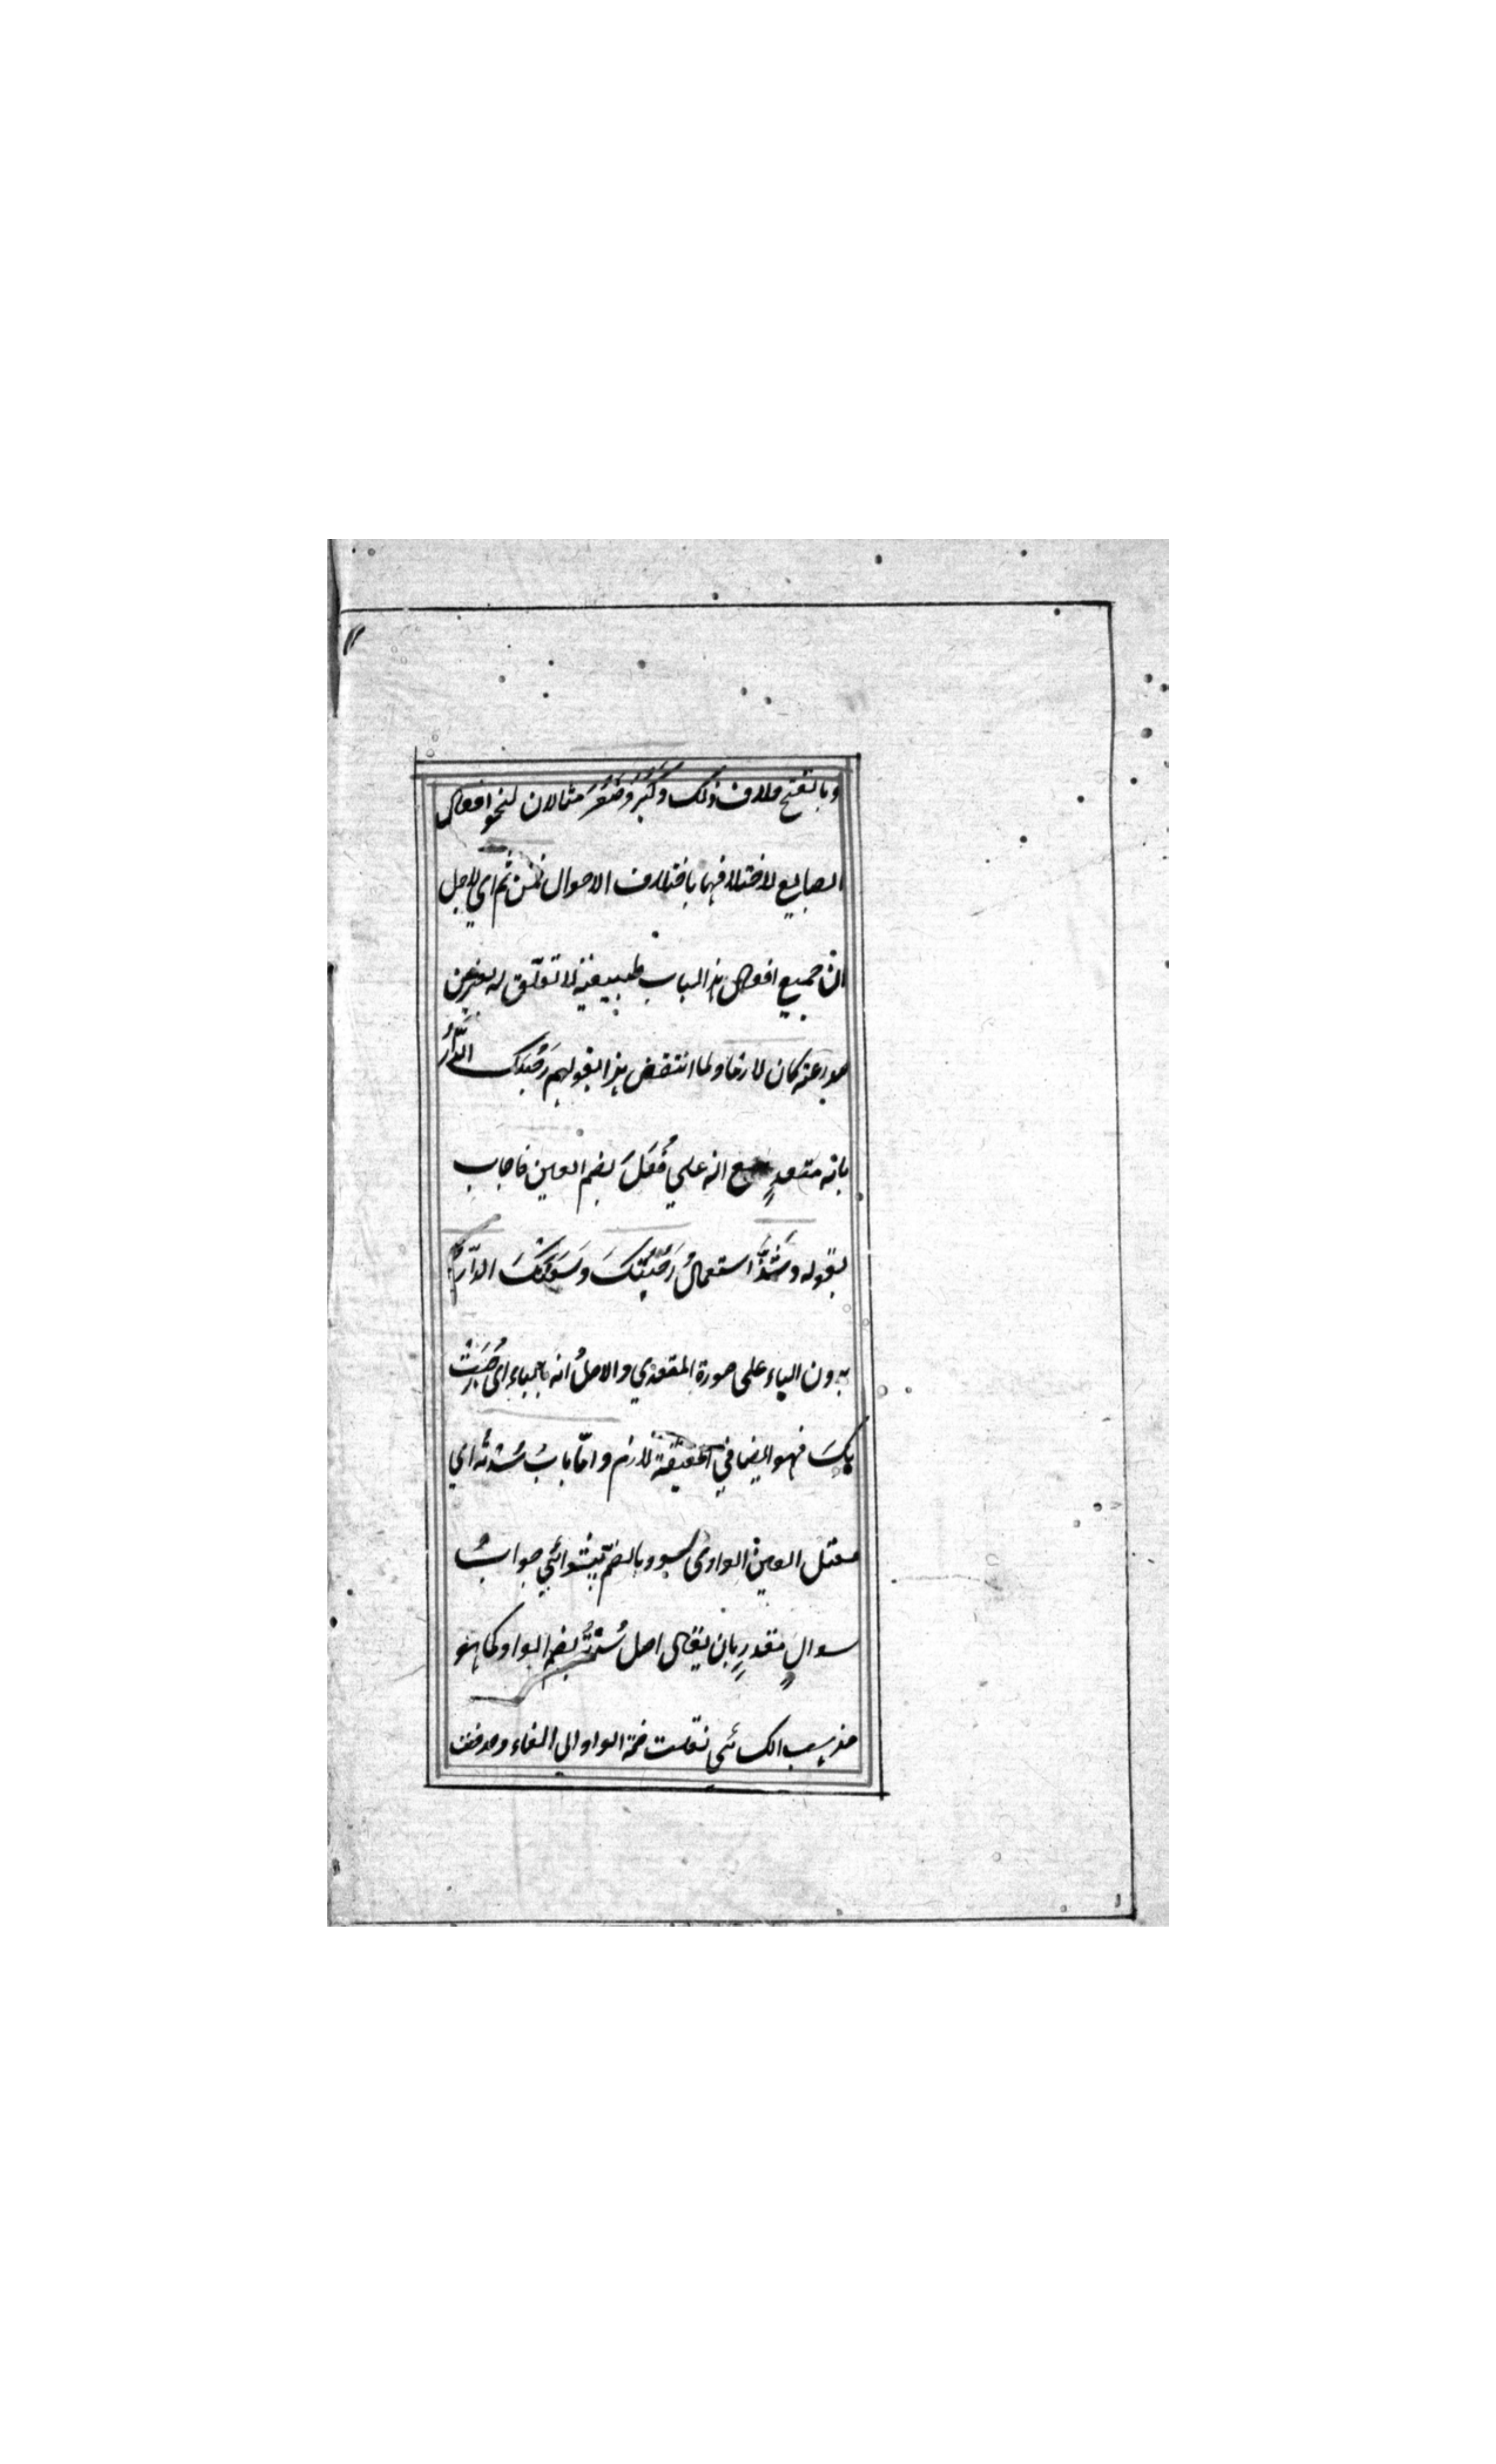 وبالفتح خلاف ذلك وكَبُرَ وصَغُرَ مثالان لنحو افعال
الطبايع لاختلافهما باختلاف الاحوال فمن ثم اي لاجل
ان جميع افعال هذا الباب طبيعية لا تعلّق له بغير من
صدر عنه كان لازما ولما انتقض هذا بقولهم رَحُبَتك الدَّارُ
بانه متعدٍ مع انه علي فَعُلَ بضم العين فاجاب
بقوله وشَذَّ استعمالُ رَحُبَتْكَ الدّار
بدون الباء على صورة المتعدي والاصلُ انه بالباء اي رَحُبَتْ
بِكَ فهو ايضا في الحقيقة لازم وامّا بابُ سُدْتُه اي
معتل العين الواوى وبالضم جوابُ
سوالٍ مقدرٍ بان يقال اصل سُدْتُ بضم الواو كما هو
مذهب الكسائي نقلت ضمة الواو الي الفاء وحذفت